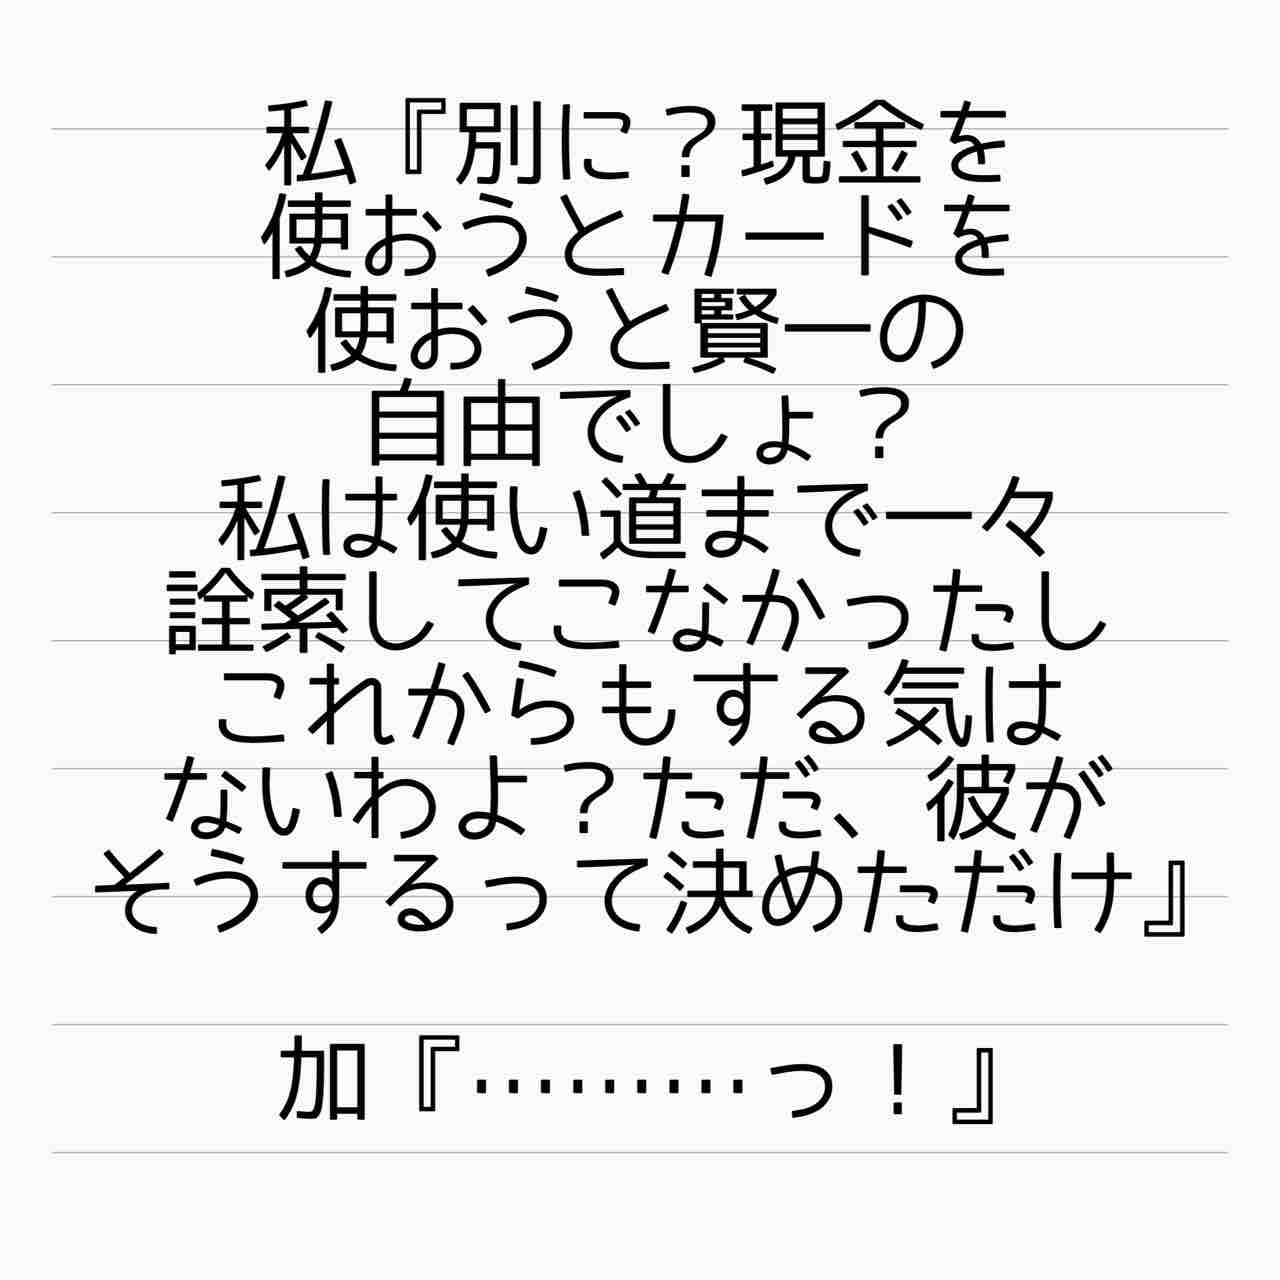 私『別に？現金を
使おうとカードを
使おうと賢一の
自由でしょ？
私は使い道まで一々
詮索してこなかったし
これからもする気は
ないわよ？ただ、彼が
そうするって決めただけ』
加『………っ！』